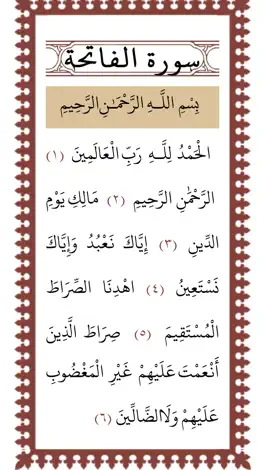 سورة الفاتحة
بِسْمِ اللَّـهِ الرَّحْمَـٰنِ الرَّحِيمِ
الْحَمْدُ لِلَّـهِ رَبِّ الْعَالَمِينَ (١)
الرَّحْمَٰنِ الرَّحِيمِ (٢) مَالِكِ يَوْمِ
الدِّينِ (٣) إِيَّاكَ نَعْبُدُ وَإِيَّاكَ
نَسْتَعِينُ (٤) اهْدِنَا الصِّرَاطَ
الْمُسْتَقِيمَ (٥) صِرَاطَ الَّذِينَ
أَنْعَمْتَ عَلَيْهِمْ غَيْرِ الْمَغْضُوبِ
عَلَيْهِمْ وَلَا الضَّالِّينَ (٦)